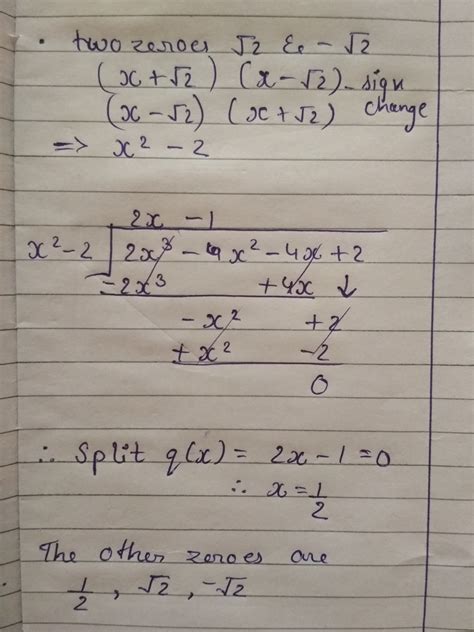 • two zeroes √2 & -√2
(x+√2) (x-√2) - sign change
(x-√2) (x+√2)
=> x² - 2
2x - 1
x²-2 2x³ - x² - 4x + 2
-2x³ +4x ↓
- x² +2
+ x² -2
0
∴ Split q(x) = 2x-1 = 0
∴ x = 1/2
The other zeroes are
1/2 , √2 , -√2